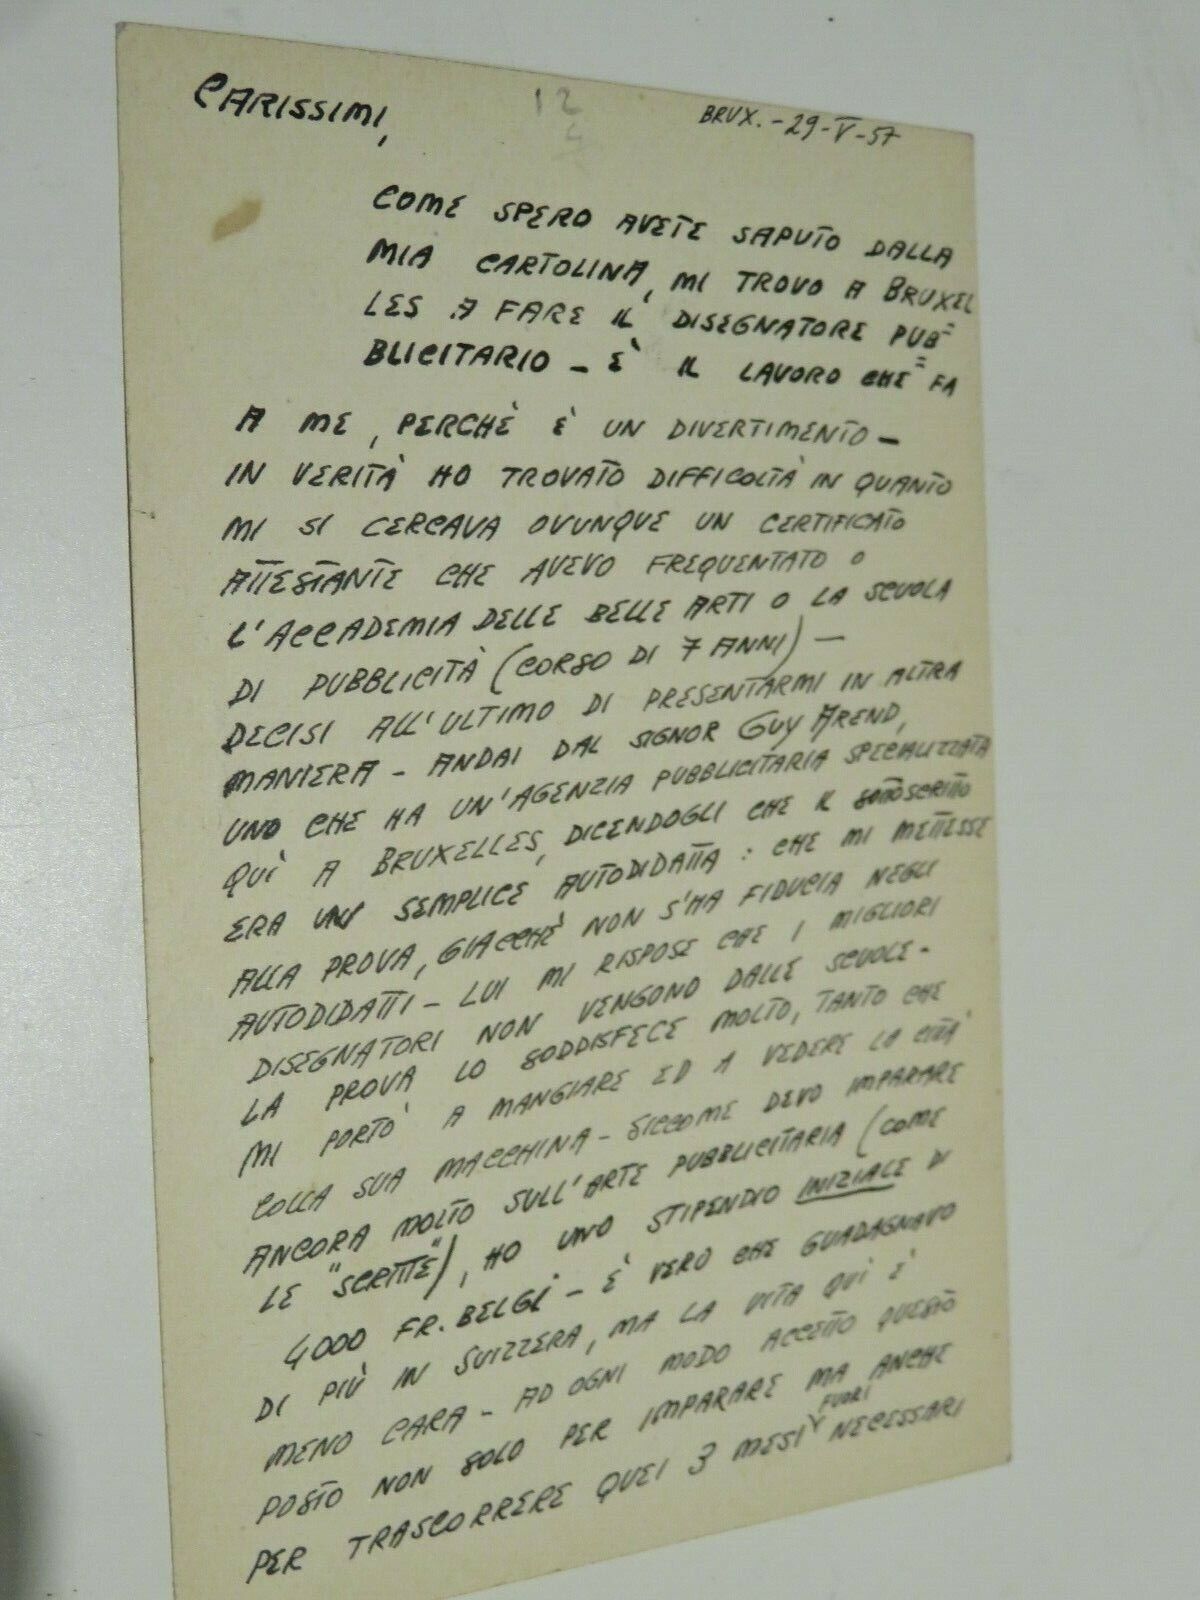 CARISSIMI,
12
BRUX. - 29-V-57
COME SPERO AVETE SAPUTO DALLA
MIA CARTOLINA, MI TROVO A BRUXEL
LES A FARE IL DISEGNATORE PUB=
BLICITARIO - È IL LAVORO CHE FA
A ME, PERCHÈ È UN DIVERTIMENTO -
IN VERITÀ HO TROVATO DIFFICOLTÀ IN QUANTO
MI SI CERCAVA OVUNQUE UN CERTIFICATO
ATTESTANTE CHE AVEVO FREQUENTATO O
L'ACCADEMIA DELLE BELLE ARTI O LA SCUOLA
DI PUBBLICITÀ (CORSO DI 7 ANNI) -
DECISI ALL'ULTIMO DI PRESENTARMI IN ALTRA
MANIERA - ANDAI DAL SIGNOR GUY AREND,
UNO CHE HA UN'AGENZIA PUBBLICITARIA SPECIALIZZATA
QUÌ A BRUXELLES, DICENDOGLI CHE IL SOTTOSCRITTO
ERA UN SEMPLICE AUTODIDATTA : CHE MI METTESSE
ALLA PROVA, GIACCHÈ NON S'HA FIDUCIA NEGLI
AUTODIDATTI - LUI MI RISPOSE CHE I MIGLIORI
DISEGNATORI NON VENGONO DALLE SCUOLE -
LA PROVA LO SODDISFECE MOLTO, TANTO CHE
MI PORTÒ A MANGIARE ED A VEDERE LA CITTÀ
COLLA SUA MACCHINA - SICCOME DEVO IMPARARE
ANCORA MOLTO SULL'ARTE PUBBLICITARIA (COME
LE "SCRITTE"), HO UNO STIPENDIO INIZIALE DI
4000 FR. BELGI - È VERO CHE GUADAGNAVO
DI PIÙ IN SVIZZERA, MA LA VITA QUÌ È
MENO CARA - AD OGNI MODO ACCETTO QUESTO
POSTO NON SOLO PER IMPARARE MA ANCHE
PER TRASCORRERE QUEI 3 MESI FUORI NECESSARI